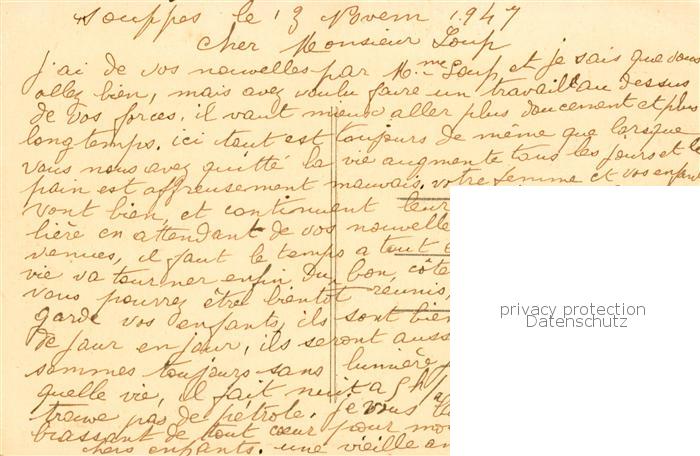 Souppes le 13 Novem 1947
Cher Monsieur Loup
j'ai de vos nouvelles par Mme Loup, et je sais que vous
allez bien, mais avez voulu faire un travail au dessus
de vos forces, il vaut mieux aller plus doucement et plus
longtemps. ici tout est toujours de même que lorsque
vous nous avez quitté la vie augmente tous les jours et le
pain est affreusement mauvais. votre femme et vos enfant
vont bien, et continuent leur
lière en attendant de vos nouvelle
venues, il faut le temps a tout
vie va tourner enfin du bon côte
vous pourrez être bientôt réunis,
garde vos enfants, ils sont bien
de jour en jour, ils seront auss
sommes toujours sans lumière
quelle vie, il fait nuit a 5 h
trouve pas de pétrole. je vous
brassant de tout cœur pour mo
chers enfants. une vieille am
privacy protection
Datenschutz